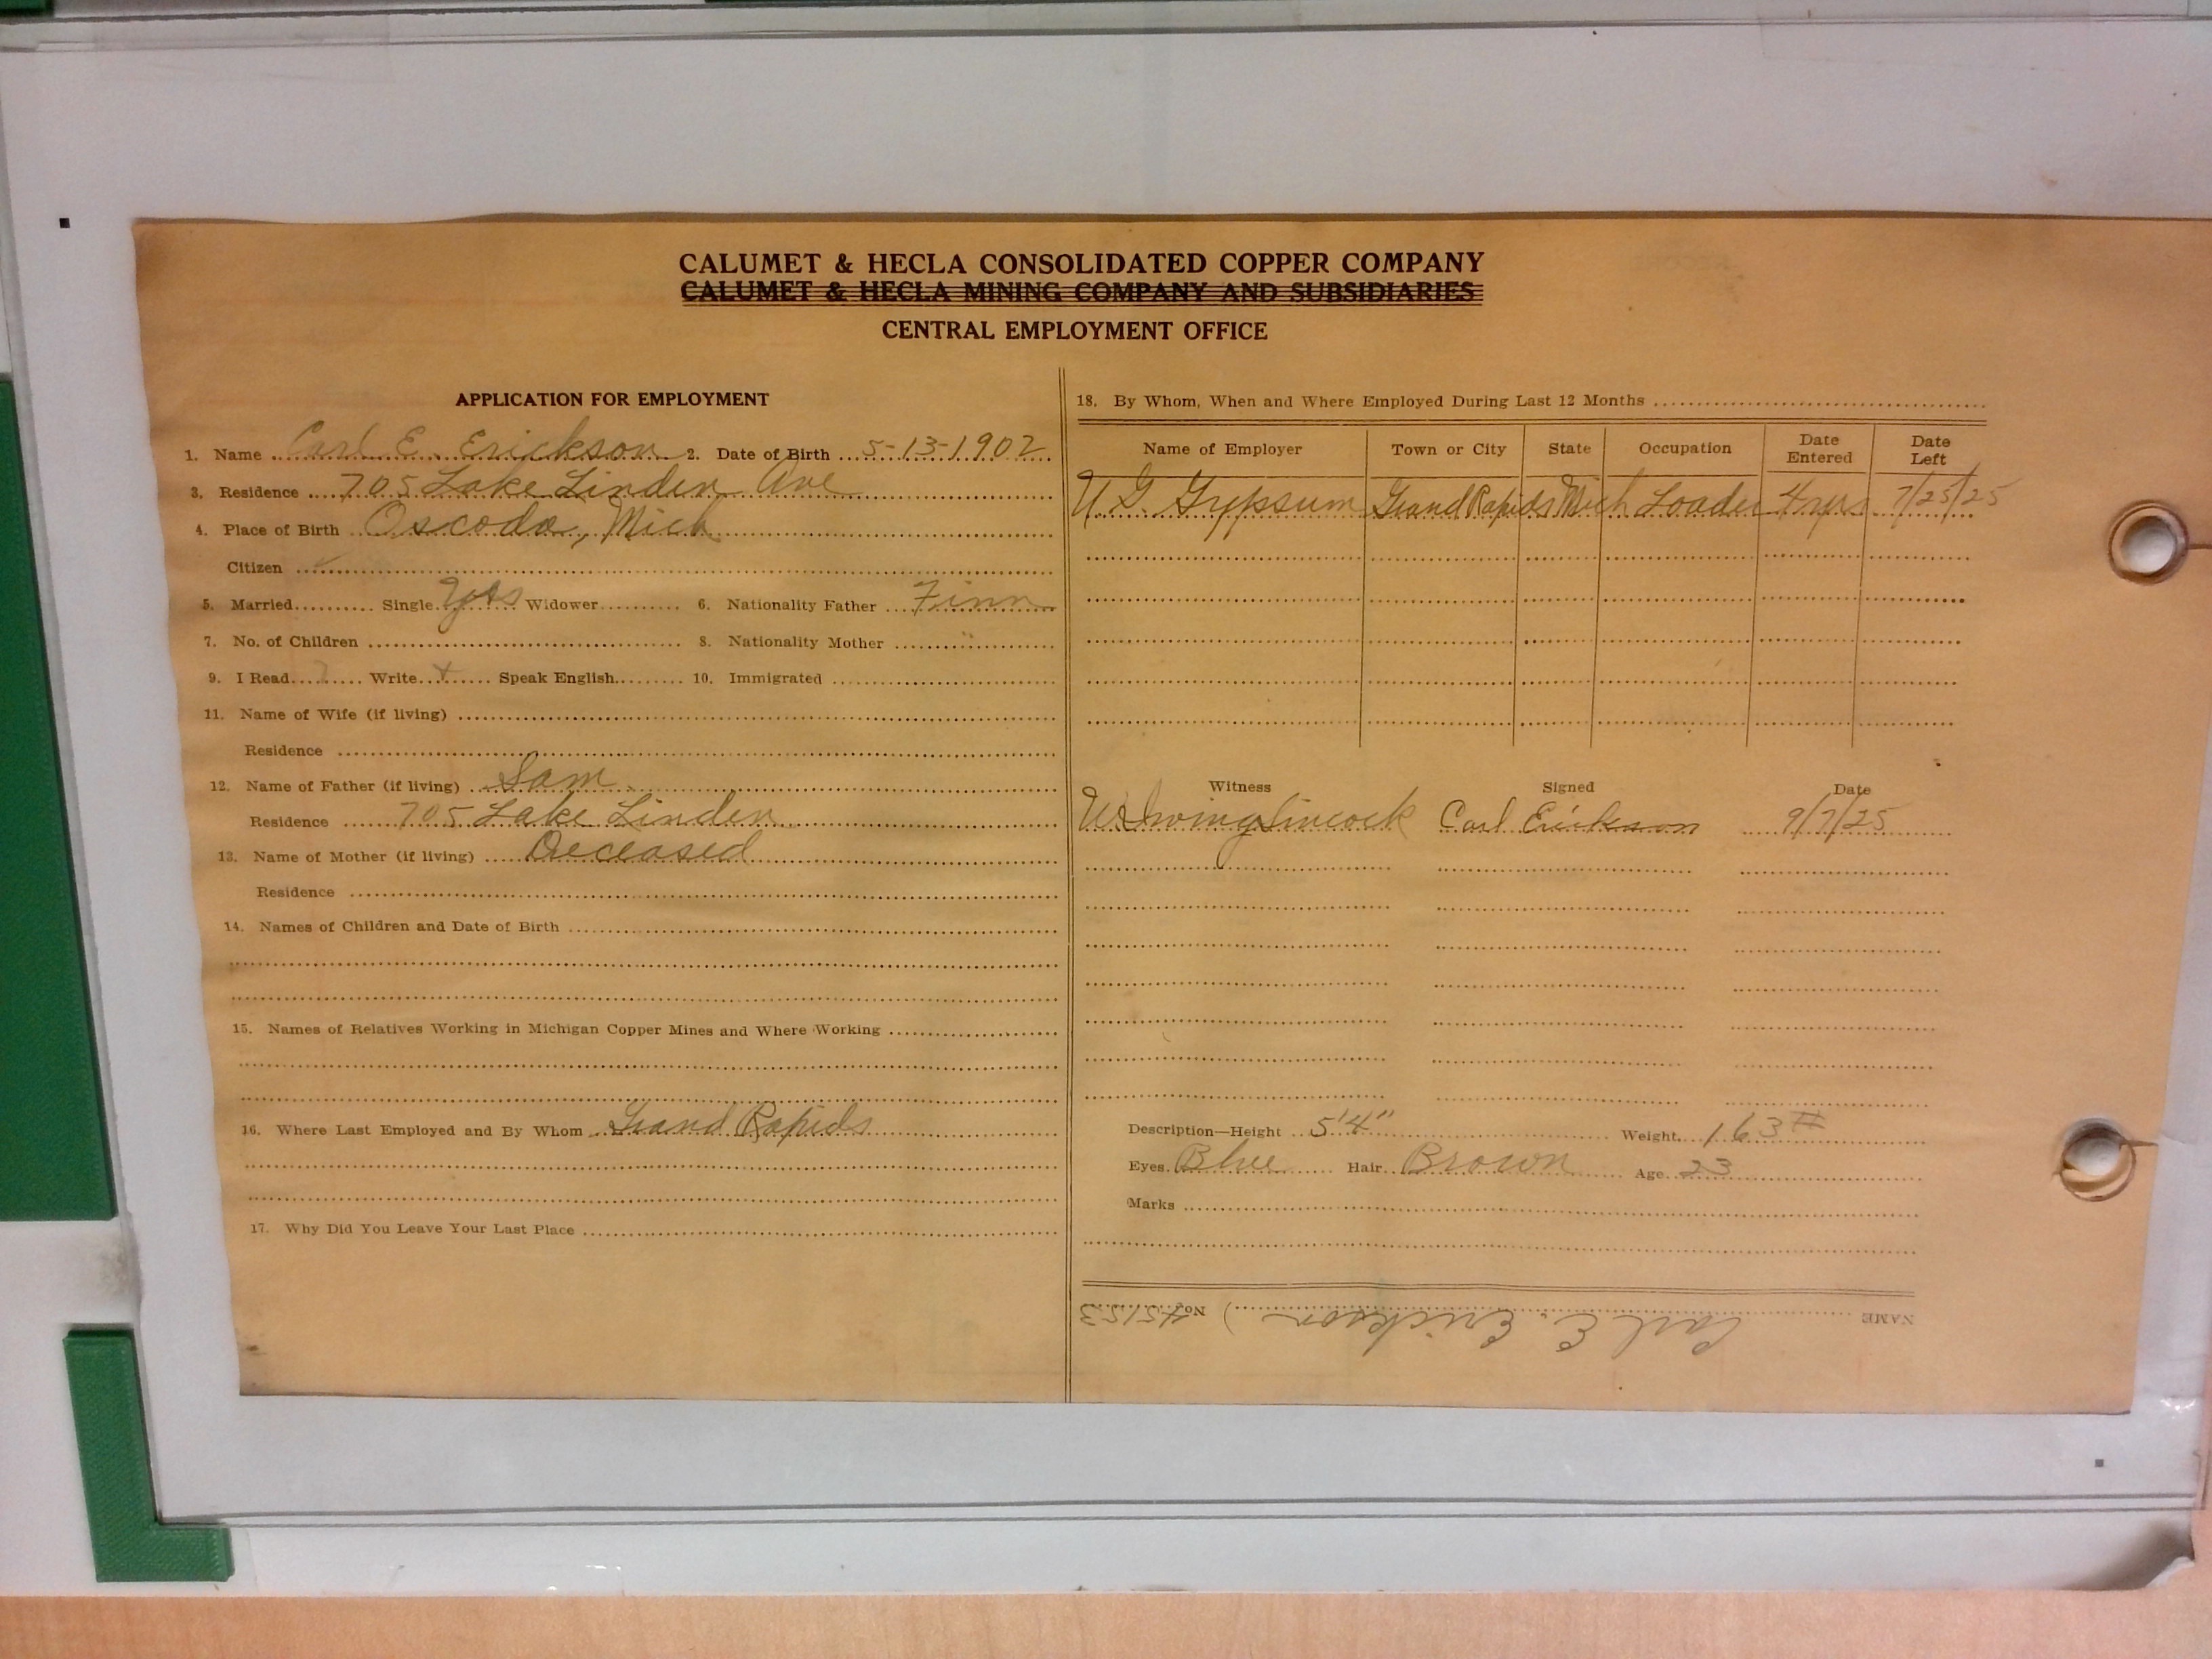 CALUMET & HECLA CONSOLIDATED COPPER COMPANY
CALUMET & HECLA MINING COMPANY AND SUBSIDIARIES
CENTRAL EMPLOYMENT OFFICE
APPLICATION FOR EMPLOYMENT
1. Name Carl E. Erickson 2. Date of Birth 5-13-1902
3. Residence 705 Lake Linden Ave
4. Place of Birth Oscoda, Mich
Citizen
5. Married Single Yes Widower 6. Nationality Father Finn
7. No. of Children 8. Nationality Mother "
9. I Read Write Speak English 10. Immigrated
11. Name of Wife (if living)
Residence
12. Name of Father (if living) Sam
Residence 705 Lake Linden
13. Name of Mother (if living) Deceased
Residence
14. Names of Children and Date of Birth
15. Names of Relatives Working in Michigan Copper Mines and Where Working
16. Where Last Employed and By Whom Grand Rapids
17. Why Did You Leave Your Last Place
18. By Whom, When and Where Employed During Last 12 Months
Name of Employer Town or City State Occupation Date Entered Date Left
U. G. Gypsum Grand Rapids Mich Loader 4 yrs 7/25/25
Witness Signed Date
Carl Erickson 9/7/25
Description—Height 5'4" Weight 163#
Eyes Blue Hair Brown Age 23
Marks
NAME Carl E. Erickson ) No. 45153